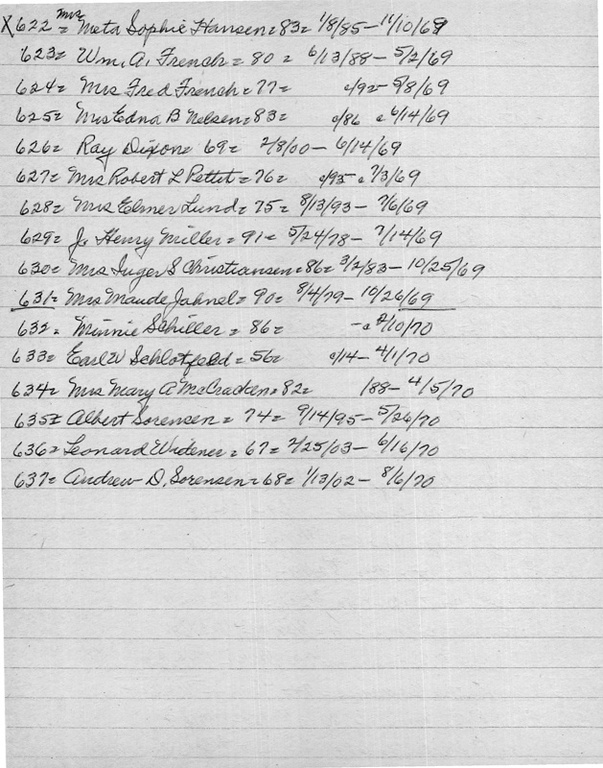 X622= Mrs Meta Sophie Hansen=83= 1/8/85-11/10/68
623= Wm. A. French= 80= 6/13/88-5/2/69
624= Mrs Fred French=77= c/92-5/8/69
625= Mrs Edna B Nelsen=83= c/86 c 6/14/69
626= Ray Dixon= 69= 2/8/00-6/14/69
627= Mrs Robert L Pettit=76= c/93-c 7/3/69
628= Mrs Elmer Lund=75= 8/13/93-7/6/69
629= J. Henry Miller=91= 5/24/78-7/14/69
630= Mrs Inger S Christiansen=86= 3/2/83-10/25/69
631= Mrs Maude Jahnel=90= 8/4/79-10/26/69
632= Minnie Schiller=86= -c 2/10/70
633= Earl W Schlotfeld=56= c/14-4/1/70
634= Mrs Mary A McCracken=82= /88-4/5/70
635= Albert Sorensen=74= 9/14/95-5/26/70
636= Leonard Widener=67= 2/25/03-6/16/70
637= Andrew D. Sorensen=68= 1/13/02-8/6/70